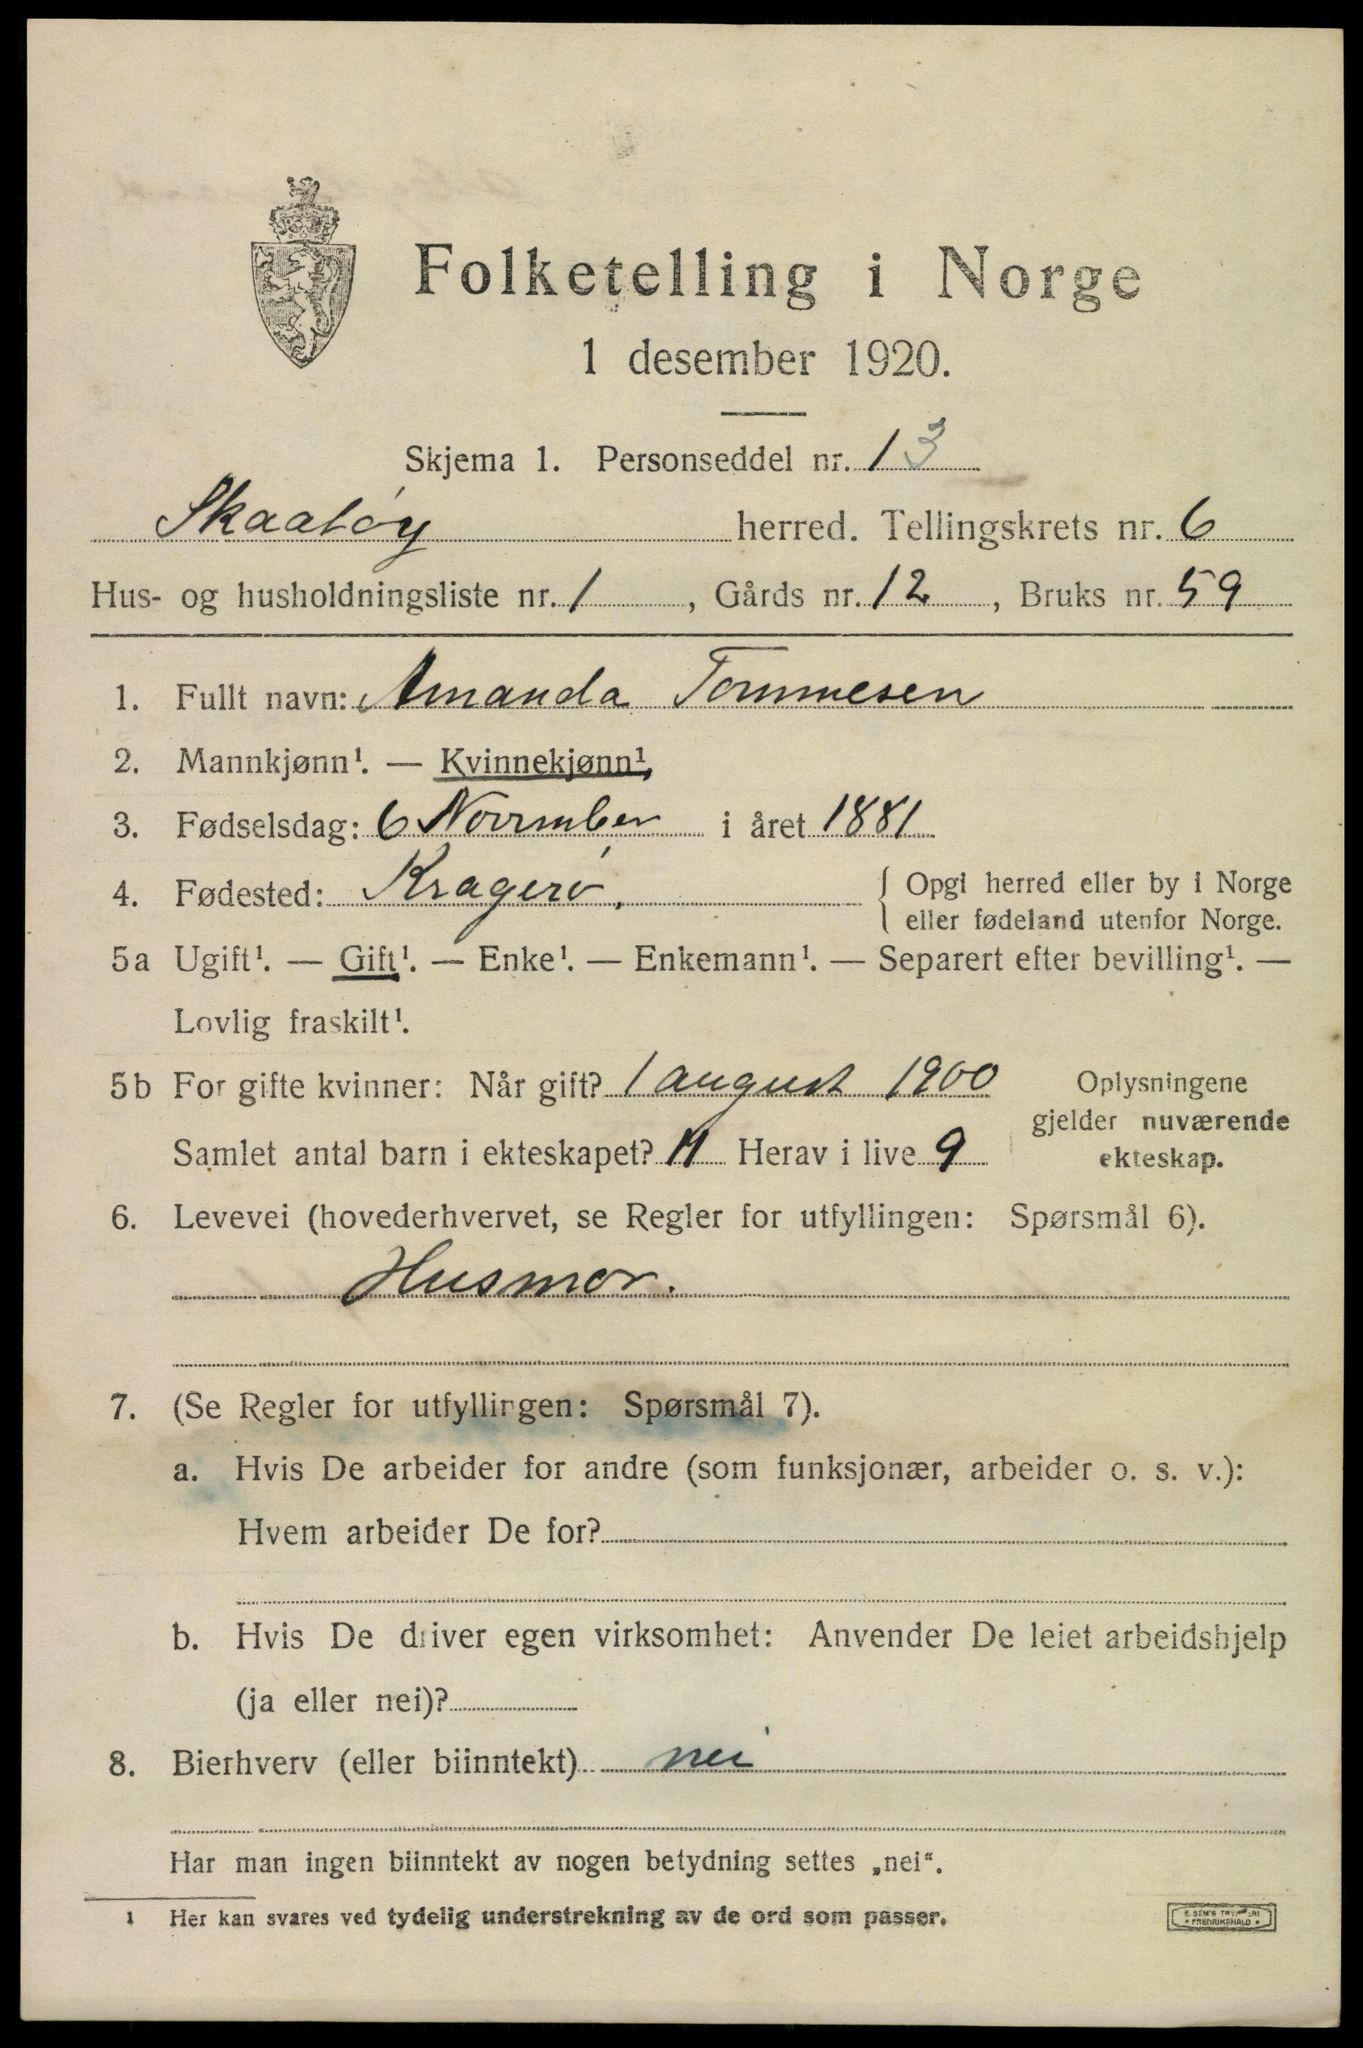 Folketelling i Norge
1 desember 1920.
Skjema 1. Personseddel nr. 13
Skaatöy herred. Tellingskrets nr. 6
Hus- og husholdningsliste nr. 1, Gårds nr. 12, Bruks nr. 59
1. Fullt navn: Amanda Tommesen
2. Mannkjønn¹. — Kvinnekjønn¹.
3. Fødselsdag: 6 November i året 1881
4. Fødested: Kragerö. { Opgi herred eller by i Norge
eller fødeland utenfor Norge.
5a Ugift¹. — Gift¹. — Enke¹. — Enkemann¹. — Separert efter bevilling¹. —
Lovlig fraskilt¹.
5b For gifte kvinner: Når gift? 1 august 1900 Oplysningene
gjelder nuværende
Samlet antal barn i ekteskapet? 11 Herav i live 9 ekteskap.
6. Levevei (hovederhvervet, se Regler for utfyllingen: Spørsmål 6).
Husmor.
7. (Se Regler for utfyllingen: Spørsmål 7).
a. Hvis De arbeider for andre (som funksjonær, arbeider o. s. v.):
Hvem arbeider De for?
b. Hvis De driver egen virksomhet: Anvender De leiet arbeidshjelp
(ja eller nei)?
8. Bierhverv (eller biinntekt) nei
Har man ingen biinntekt av nogen betydning settes „nei“.
1 Her kan svares ved tydelig understrekning av de ord som passer.
FREDRIKSHALD